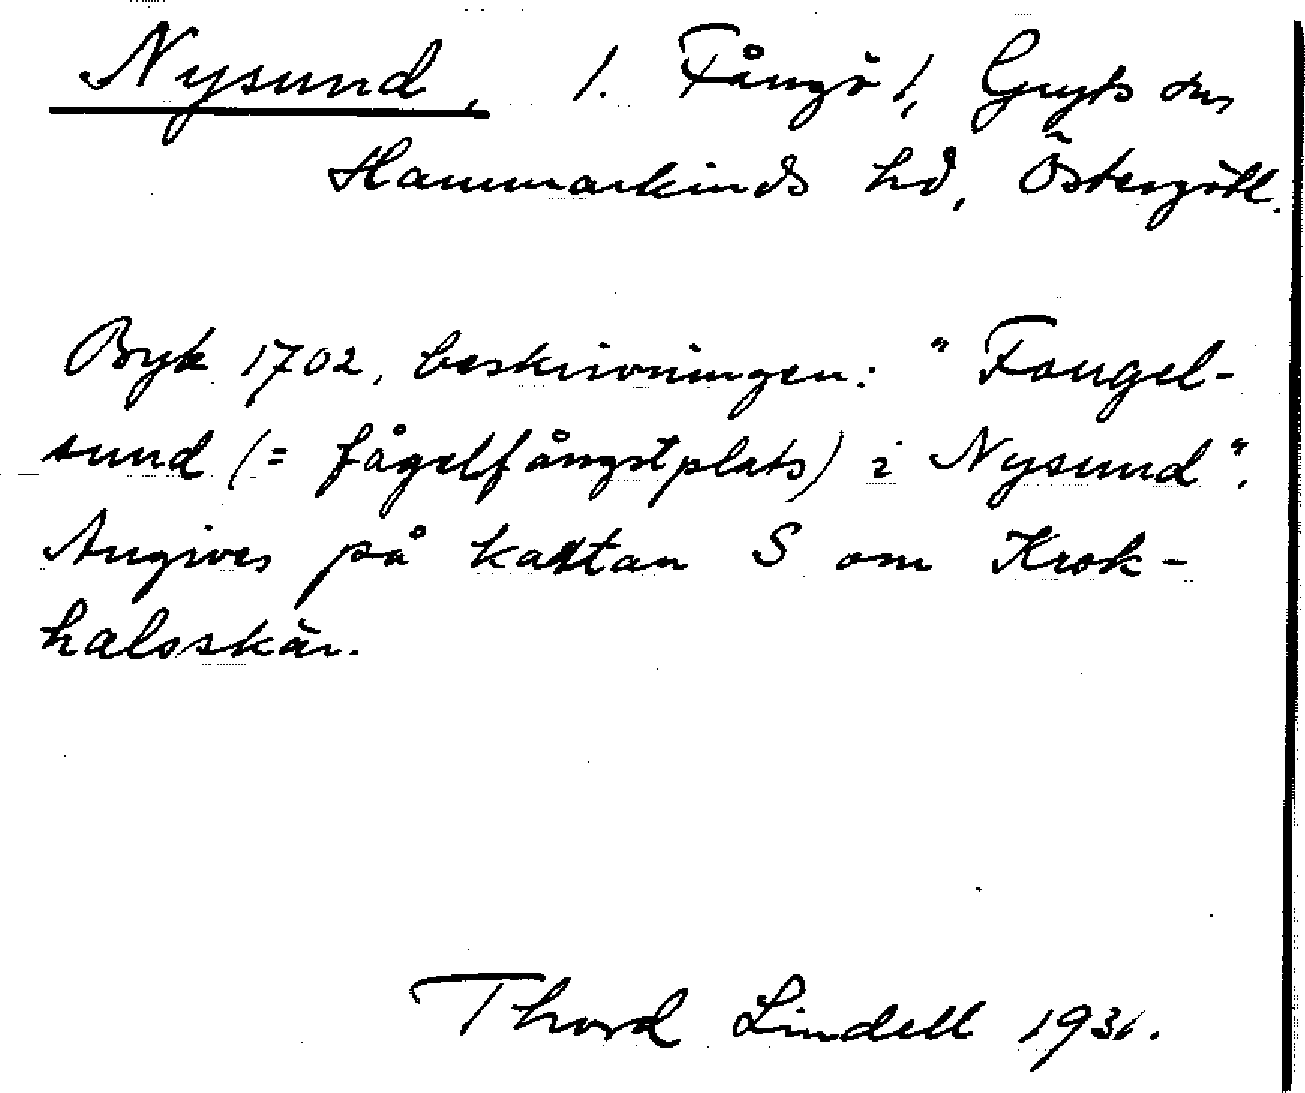 Nysund, 1. Fångö 1, Gryts sn,
Hammarkinds hd, Östergötl.
Bryk 1702, beskrivningen: "Fangel-
sund (= fågelfångstplats) i Nysund".
Angives på kartan S om Krok-
halsskär.
Thord Lindell 1931.